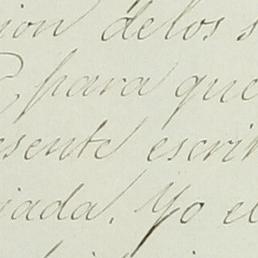 ion delos s
para que
sente escrit
iada. Yo el